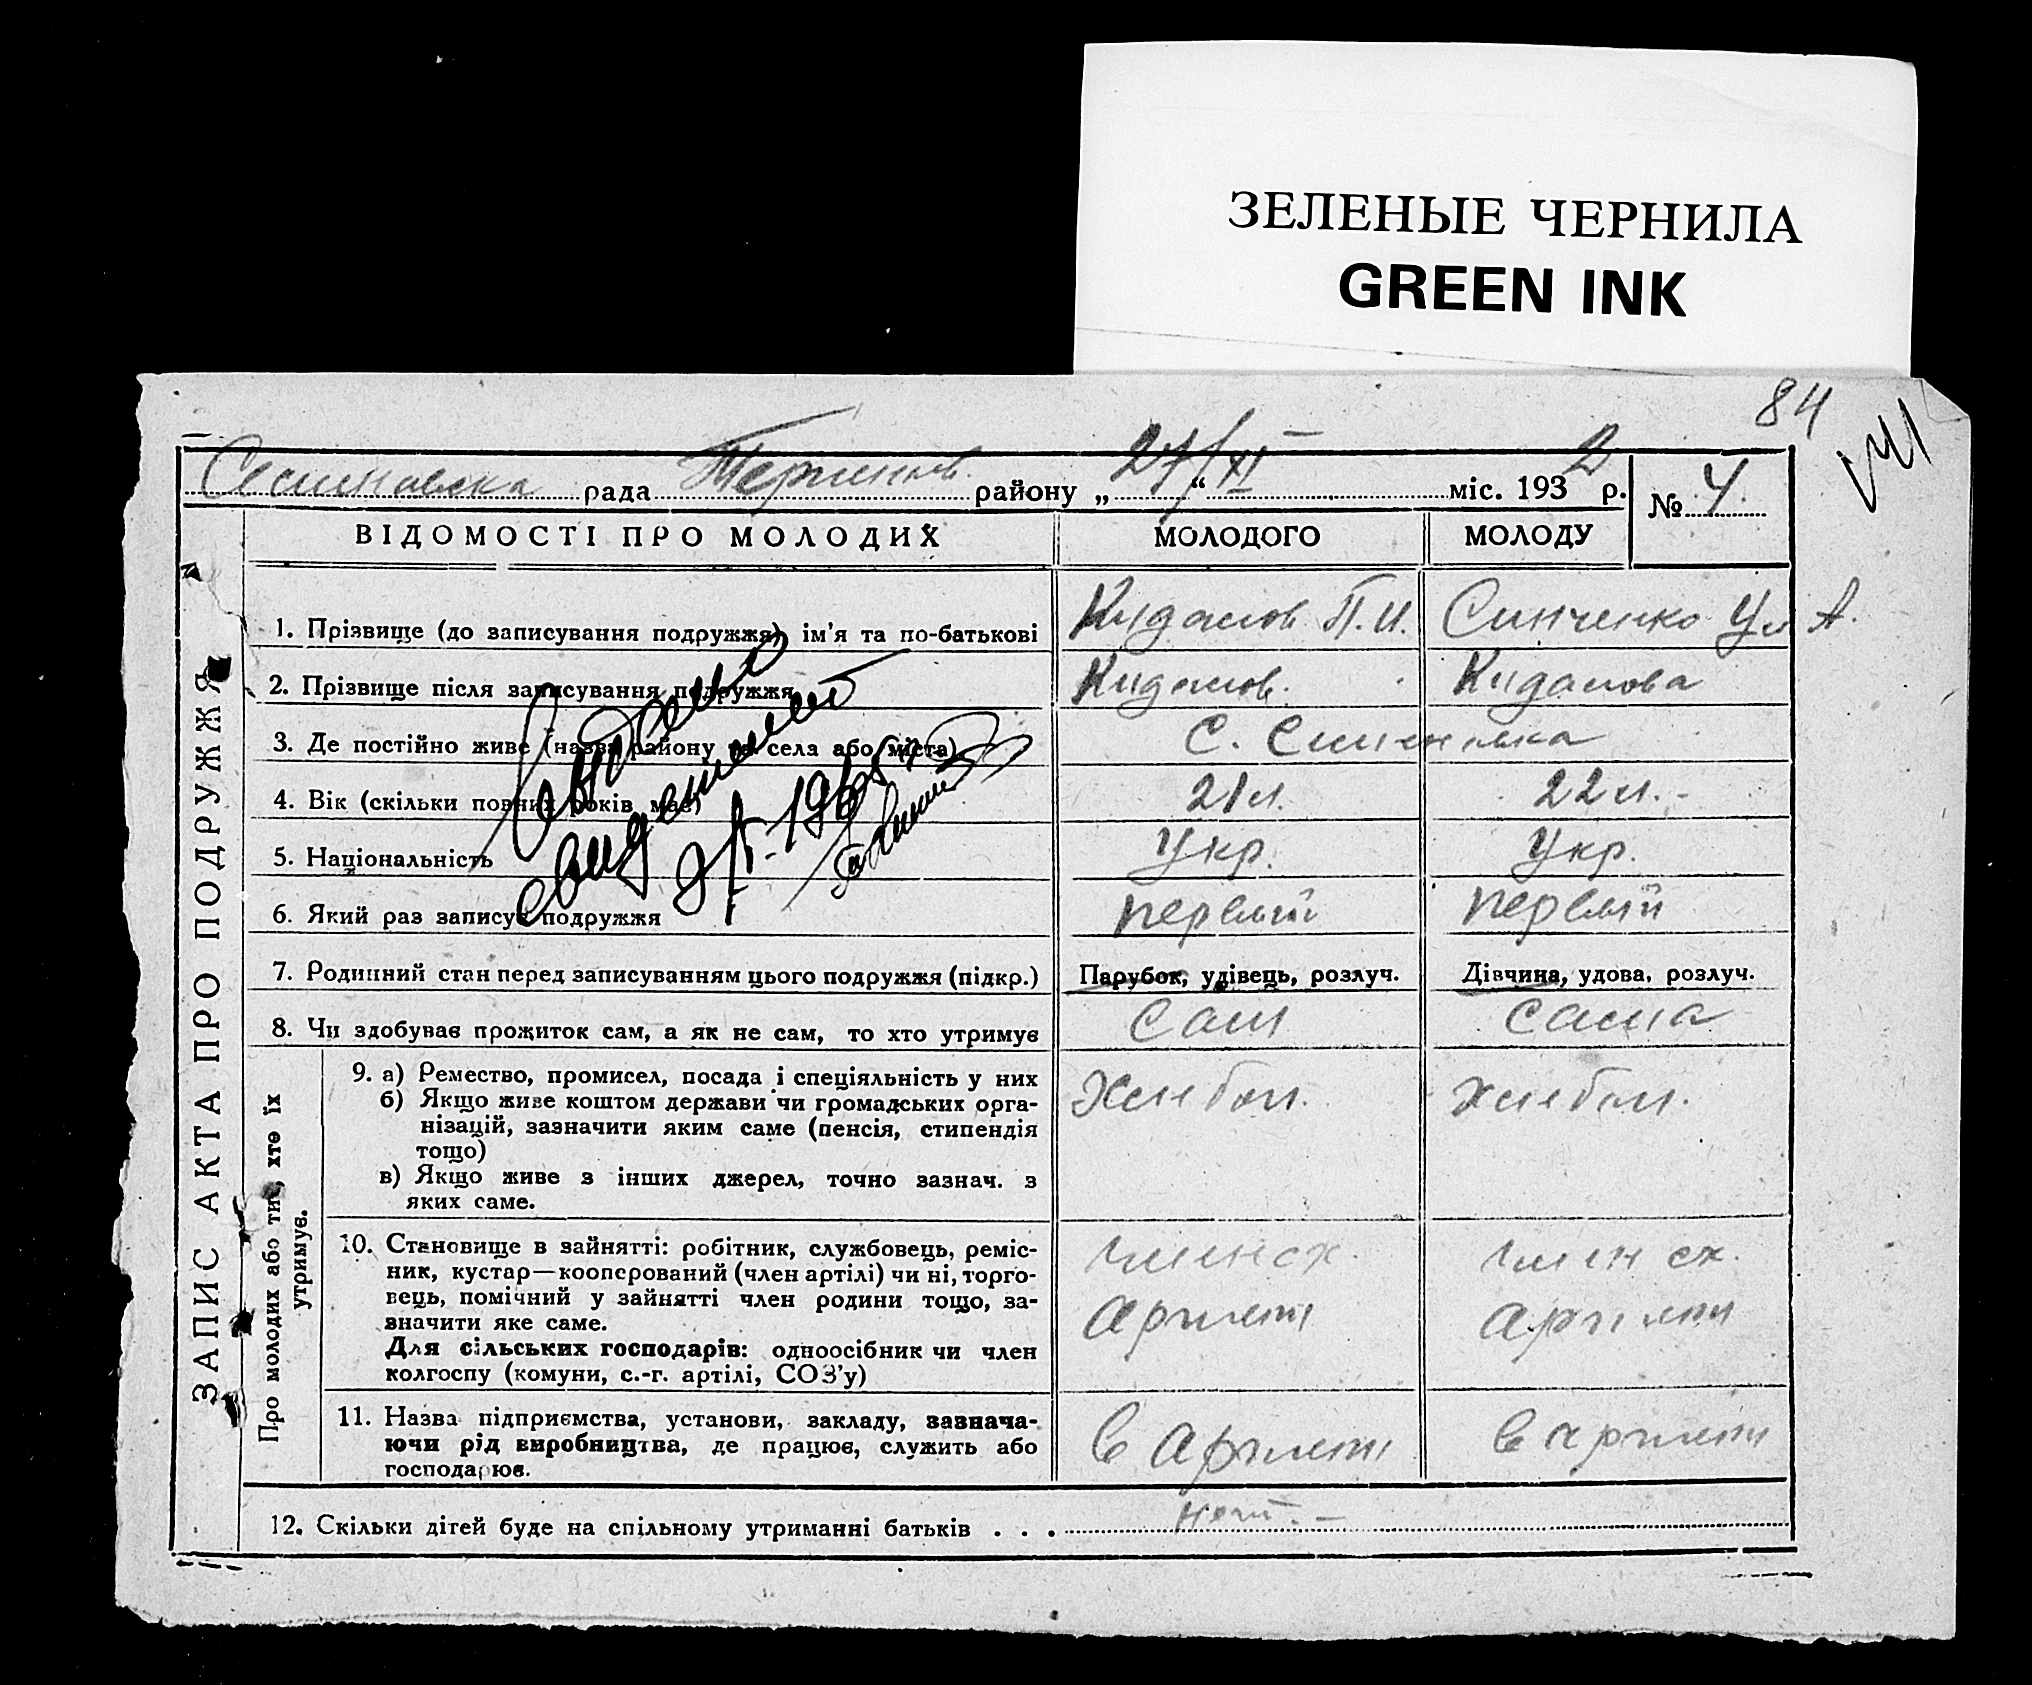 ЗЕЛЕНЫЕ ЧЕРНИЛА
GREEN INK
84
рада района „27/XI“ міс. 1932 р. № 4
ЗАПИС АКТА ПРО ПОДРУЖЖЯ
ВІДОМОСТІ ПРО МОЛОДИХ МОЛОДОГО МОЛОДУ
1. Прізвище (до записування подружжя) ім'я та по-батькові Кидалов П.И. Синченко Ул А.
2. Прізвище після записування подружжя Кидалов. Кидалова
3. Де постійно живе (назва району та села або міста) с.
4. Вік (скільки повних років має) 21 л. 22 л.
5. Національність Укр. Укр.
6. Який раз записує подружжя первый первый
7. Родинний стан перед записуванням цього подружжя (підкр.) Парубок, удівець, розлуч. Дівчина, удова, розлуч.
8. Чи здобував прожиток сам, а як не сам, то хто утримує сам сама
Про молодих або тих, хто їх
утримує.
9. а) Ремество, промисел, посада і спеціяльність у них Хлебоп. хлебоп.
б) Якщо живе коштом держави чи громадських орга-
нізацій, зазначити яким саме (пенсія, стипендія
тощо)
в) Якщо живе з інших джерел, точно зазнач. з
яких саме.
10. Становище в зайнятті: робітник, службовець, реміс- член сх. член сх.
ник, кустар—кооперований (член артілі) чи ні, торго-
вець, помічний у зайнятті член родини тощо, за- артели артели
значити яке саме.
Для сільських господарів: одноосібник чи член
колгоспу (комуни, с.-г. артілі, СОЗ'у)
11. Назва підприємства, установи, закладу, зазнача- в артели в артели
ючи рід виробництва, де працює, служить або
господарює.
12. Скільки дітей буде на спільному утриманні батьків . . . нет. –
Выдано
свидетельство